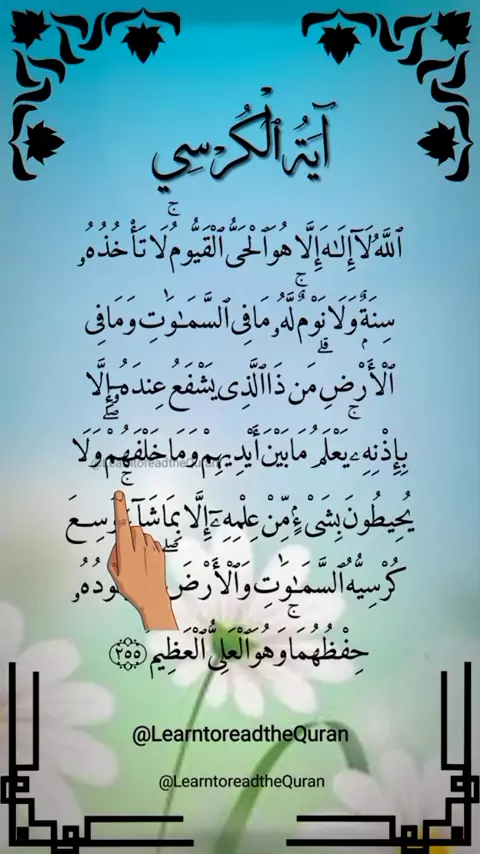 آيَةُ ٱلْكُرْسِي
ٱللَّهُ لَآ إِلَـٰهَ إِلَّا هُوَ ٱلْحَىُّ ٱلْقَيُّومُ ۚ لَا تَأْخُذُهُۥ
سِنَةٌ وَلَا نَوْمٌ ۚ لَّهُۥ مَا فِى ٱلسَّمَـٰوَٰتِ وَمَا فِى
ٱلْأَرْضِ ۗ مَن ذَا ٱلَّذِى يَشْفَعُ عِندَهُۥٓ إِلَّا
بِإِذْنِهِۦ ۚ يَعْلَمُ مَا بَيْنَ أَيْدِيهِمْ وَمَا خَلْفَهُمْ ۖ وَلَا
@LearntoreadtheQuran
يُحِيطُونَ بِشَىْءٍ مِّنْ عِلْمِهِۦٓ إِلَّا بِمَا شَآءَ ۚ وَسِعَ
كُرْسِيُّهُ ٱلسَّمَـٰوَٰتِ وَٱلْأَرْضَ ۖ
حِفْظُهُمَا ۚ وَهُوَ ٱلْعَلِىُّ ٱلْعَظِيمُ ٢٥٥
@LearntoreadtheQuran
@LearntoreadtheQuran